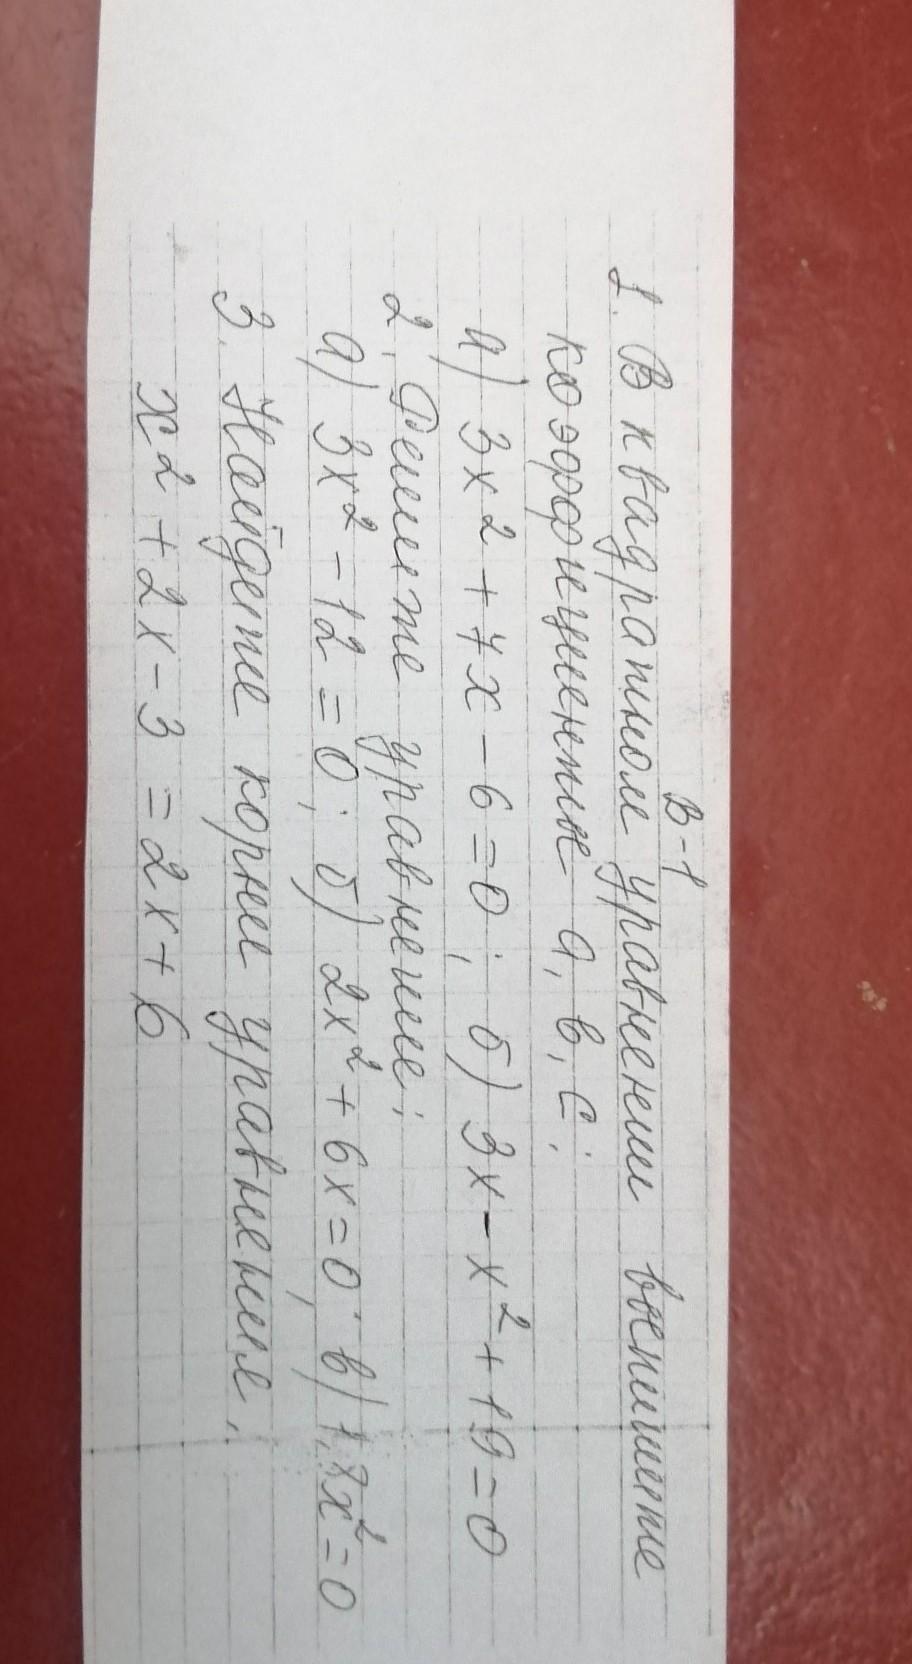 В-1
1. В квадратном уравнении выпишете
коэффициенты а, в, с.
а) 3x² + 7x - 6 = 0; б) 3x - x² + 19 = 0
2. Решите уравнение:
а) 3x² - 12 = 0; б) 2x² + 6x = 0; в) 1,8x² = 0
3. Найдите корни уравнения:
x² + 2x - 3 = 2x + 6